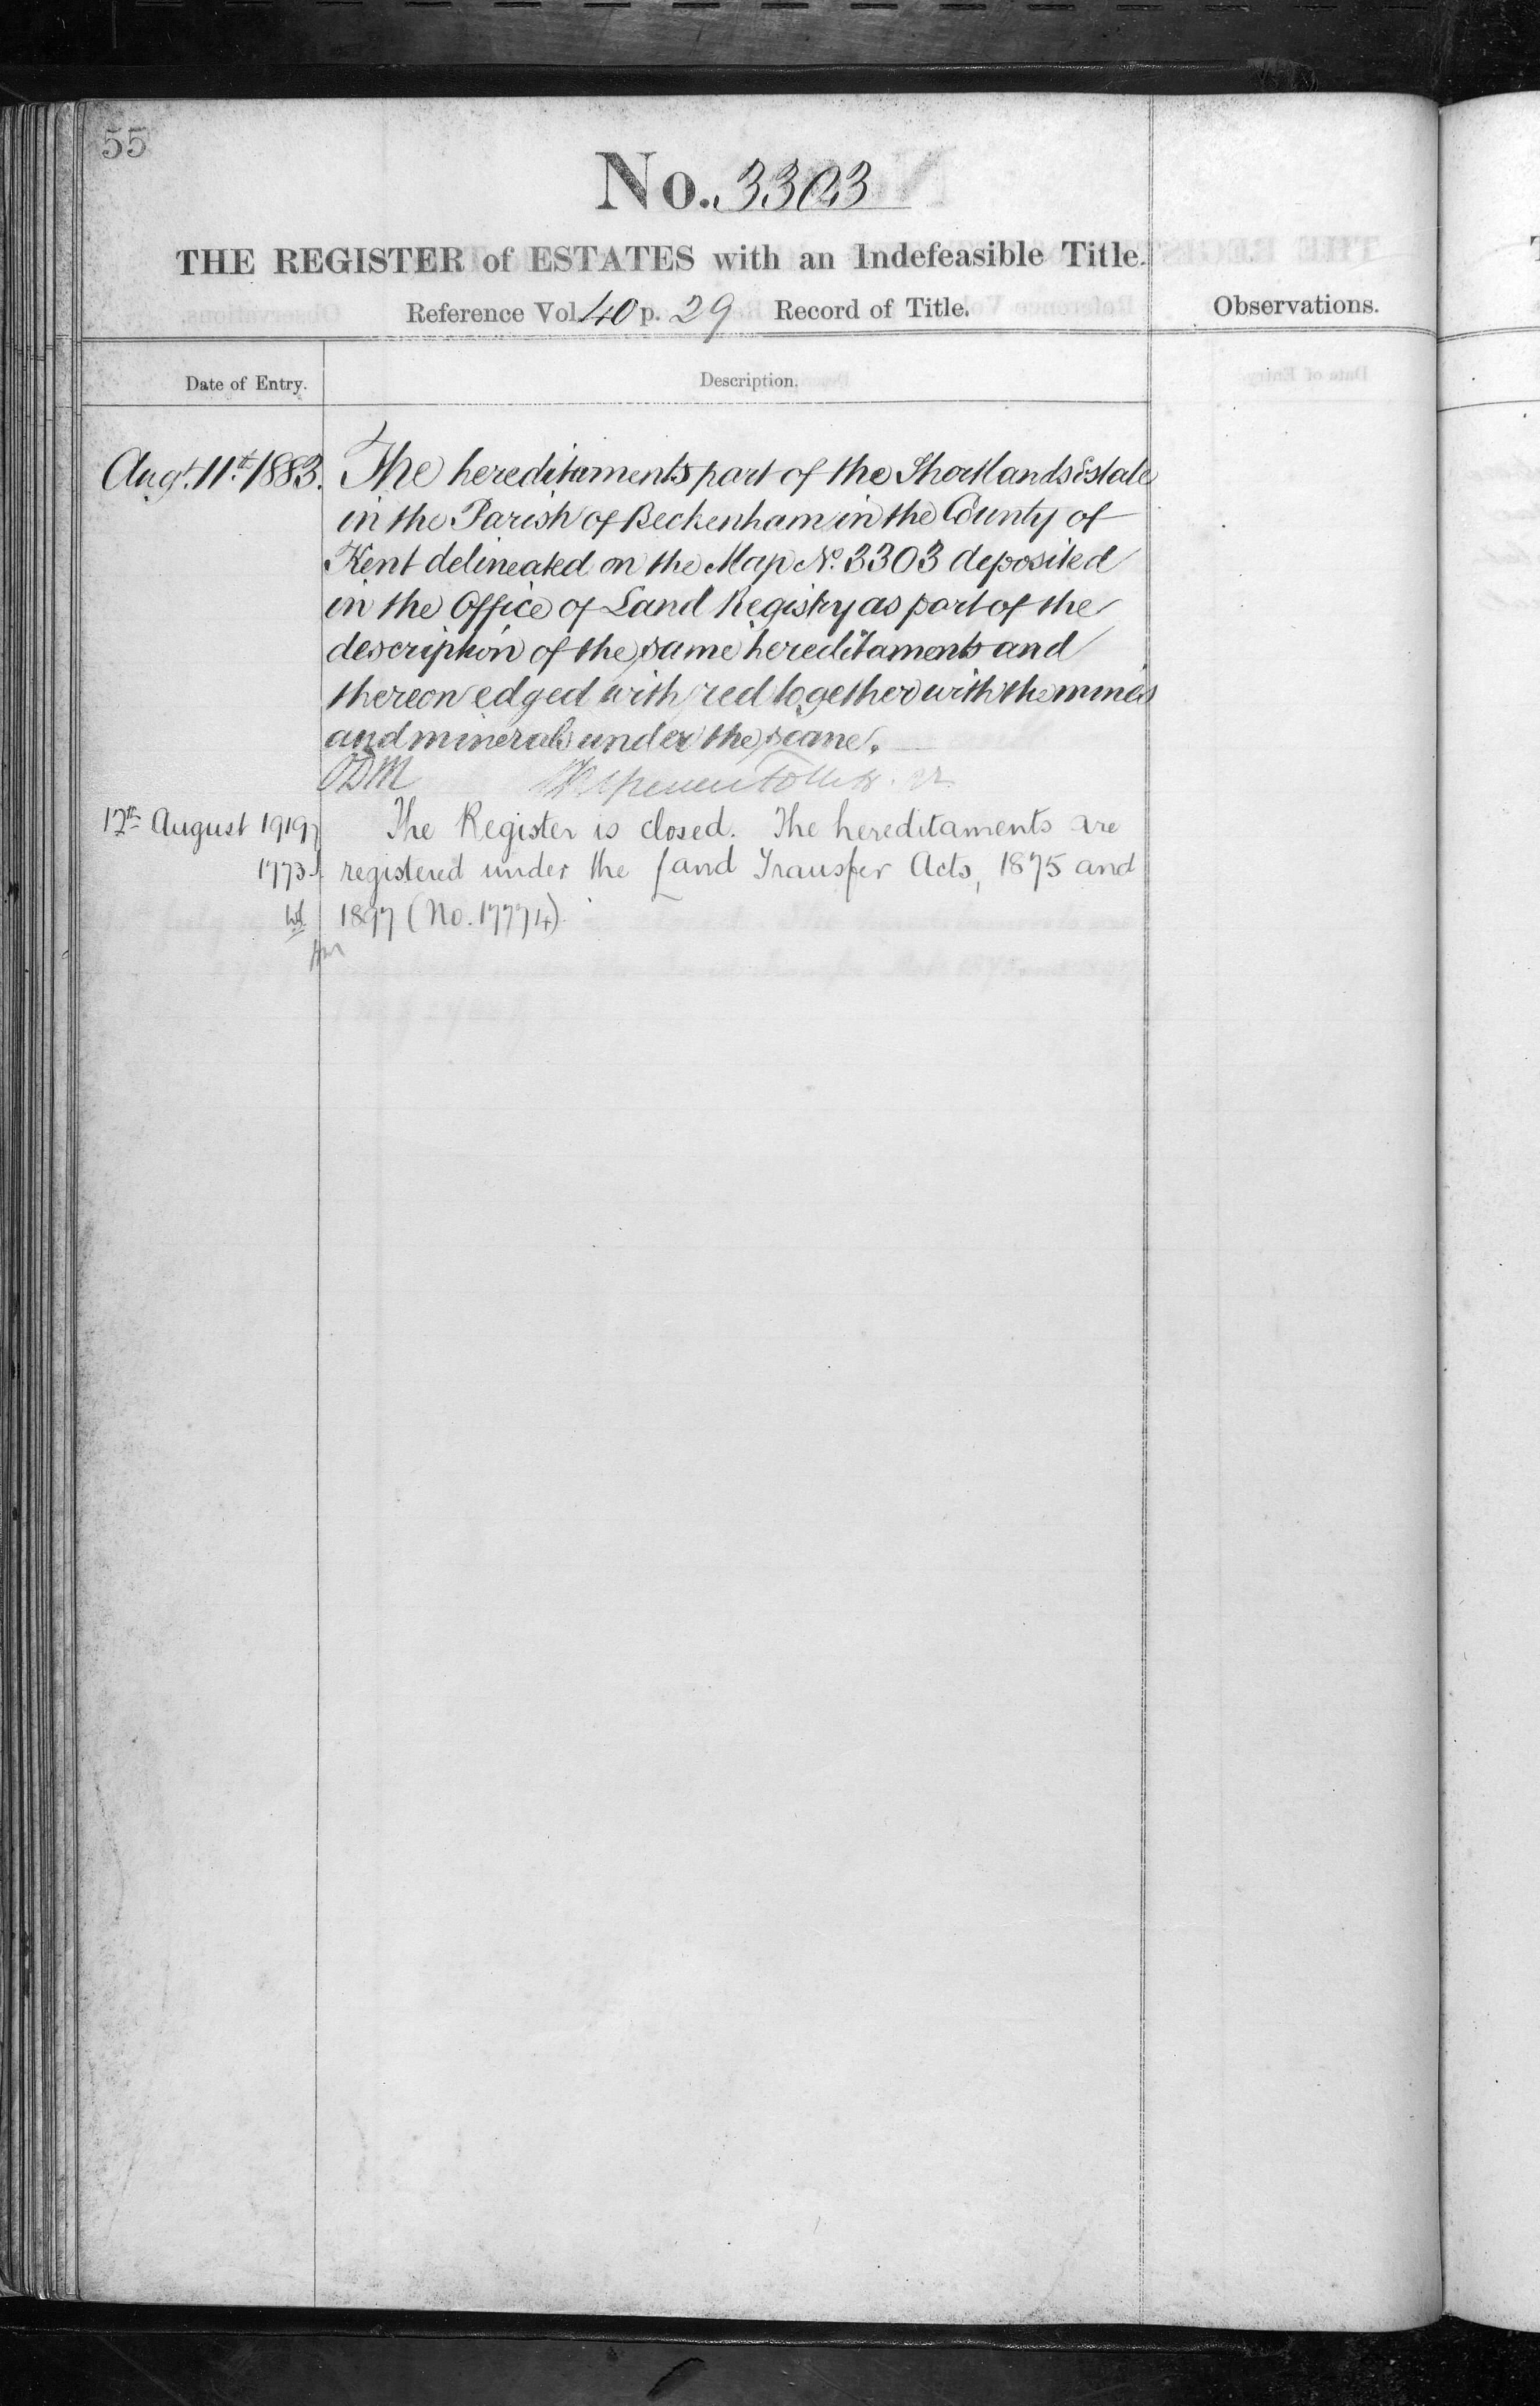 55
No. 3303
THE REGISTER of ESTATES with an Indefeasible Title.
Reference Vol. 40 p. 29 Record of Title.
Observations.
Date of Entry.
Description.
Augt. 11th 1883. The hereditaments part of the Shortlands Estate
in the Parish of Beckenham in the County of
Kent delineated on the Map No. 3303 deposited
in the Office of Land Registry as part of the
description of the same hereditaments and
thereon edged with red together with the mines
and minerals under the same.
12th August 1919 The Register is closed. The hereditaments are
1773 registered under the Land Transfer Acts, 1875 and
1897 (No. 17774).